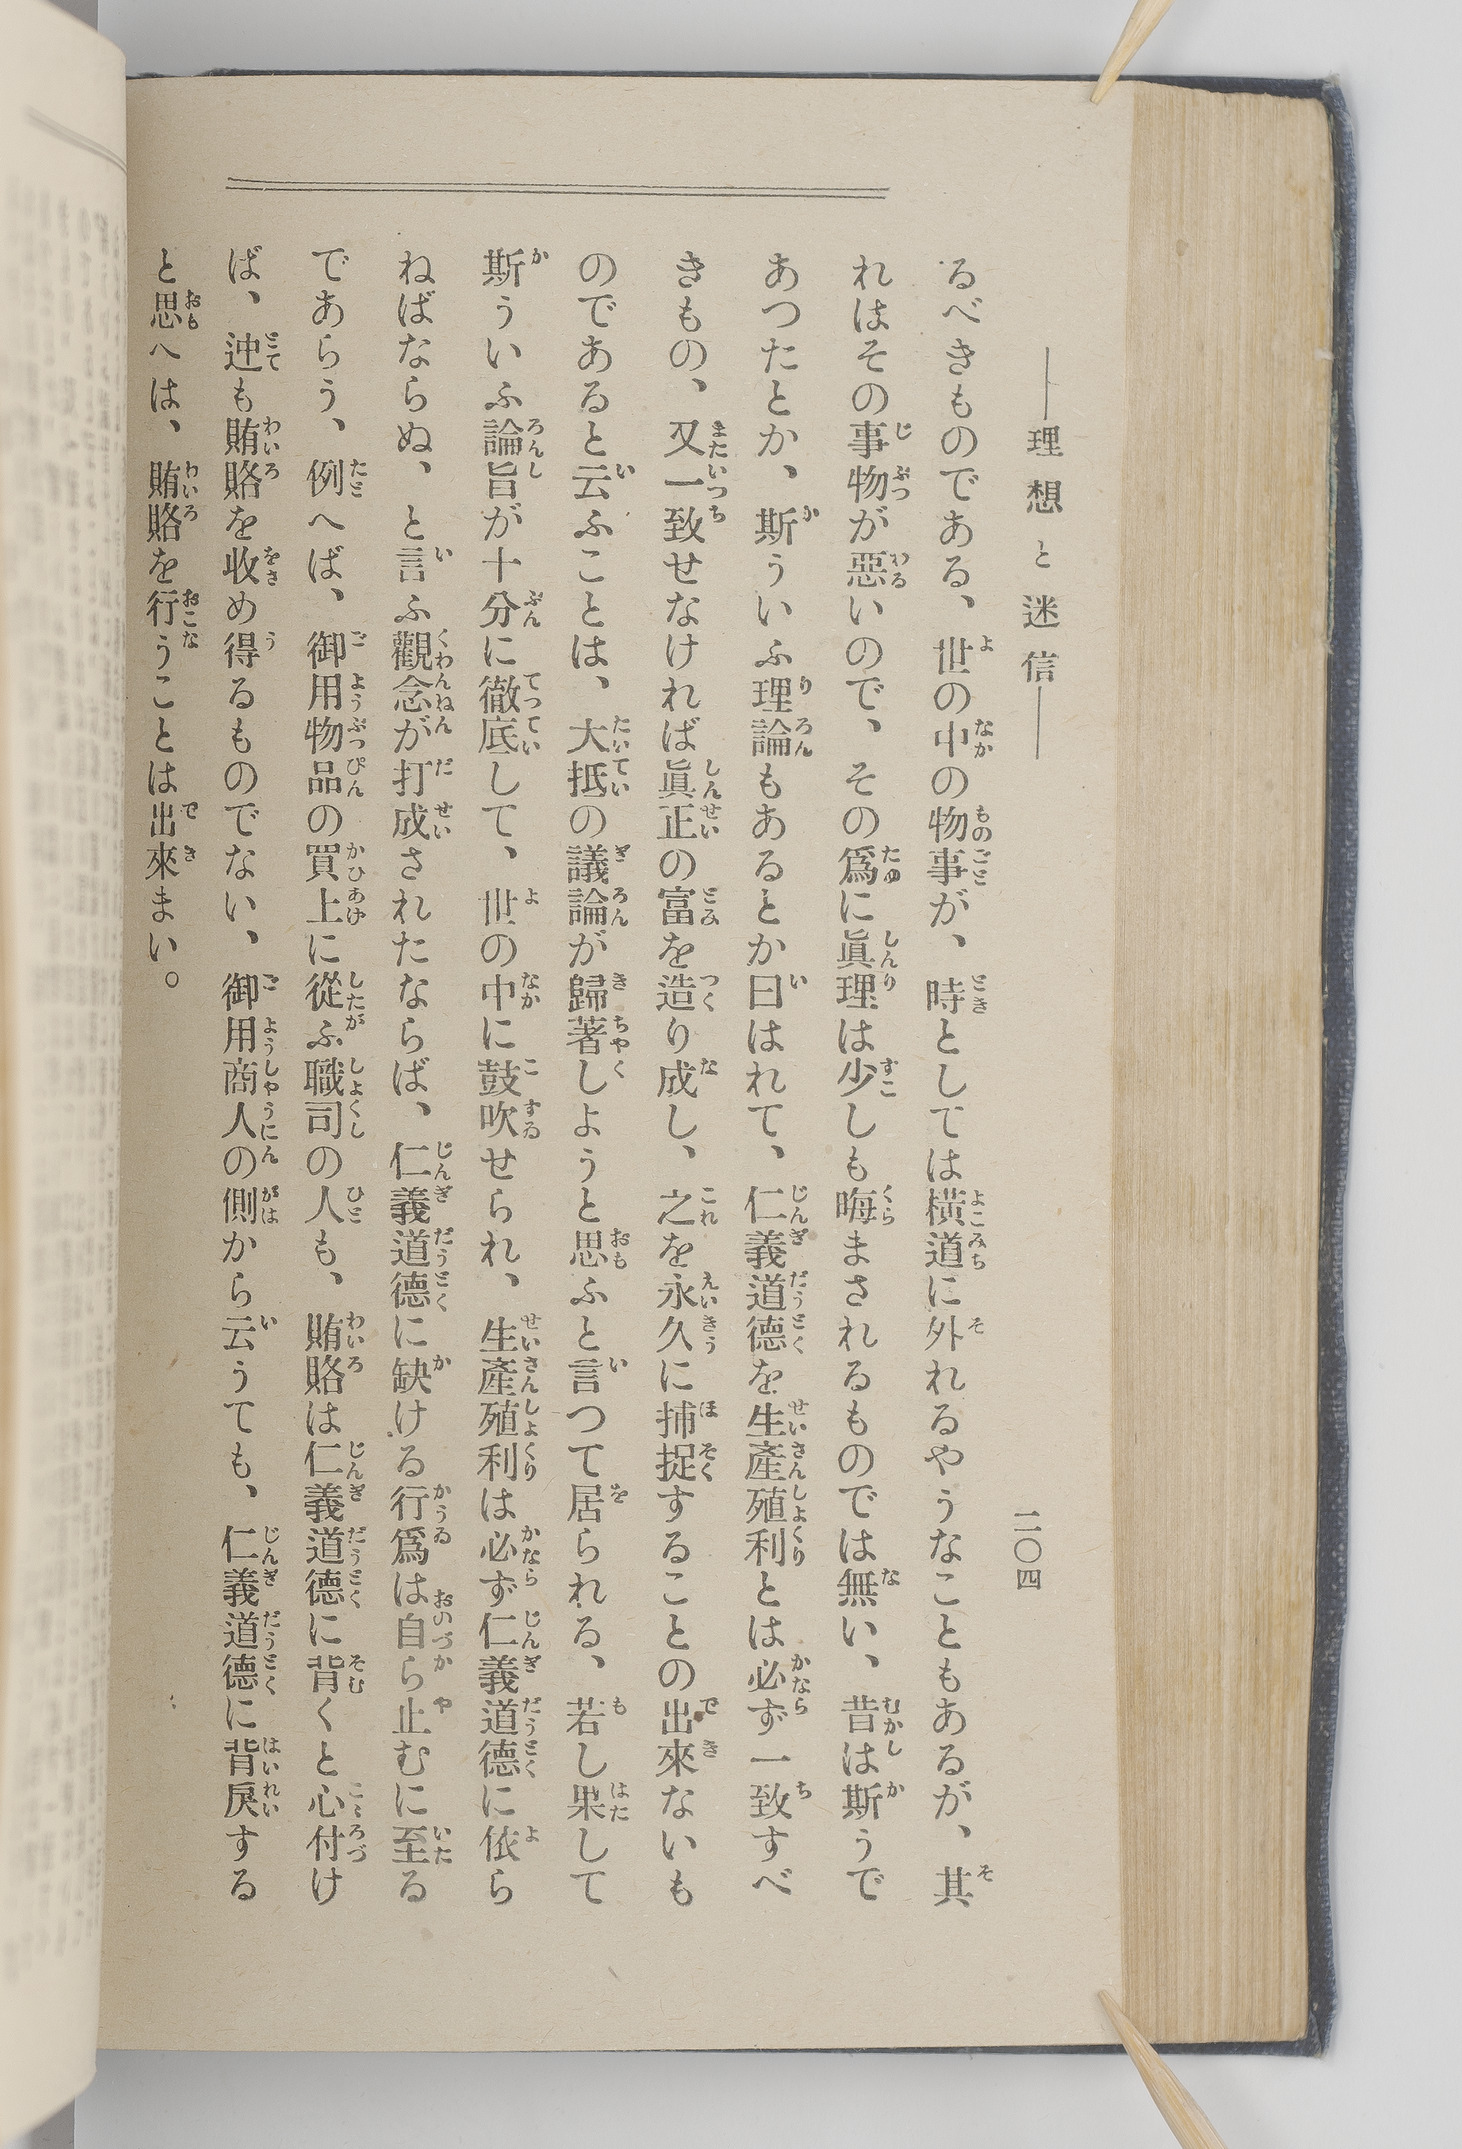 ―理想と迷信―
二〇四
るべきものである、世の中の物事が、時としては橫道に外れるやうなこともあるが、其
れはその事物が惡いので、その爲に眞理は少しも晦まされるものでは無い、昔は斯うで
あつたとか、斯ういふ理論もあるとか曰はれて、仁義道德を生產殖利とは必ず一致すべ
きもの、又一致せなければ眞正の富を造り成し、之を永久に捕捉することの出來ないも
のであると云ふことは、大抵の議論が歸著しようと思ふと言つて居られる、若し果して
斯ういふ論旨が十分に徹底して、世の中に鼓吹せられ、生產殖利は必ず仁義道德に依ら
ねばならぬ、と言ふ觀念が打成されたならば、仁義道德に缺ける行爲は自ら止むに至る
であらう、例へば、御用物品の買上に從ふ職司の人も、賄賂は仁義道德に背くと心付け
ば、迚も賄賂を收め得るものでない、御用商人の側から云うても、仁義道德に背戾する
と思へは、賄賂を行うことは出來まい。